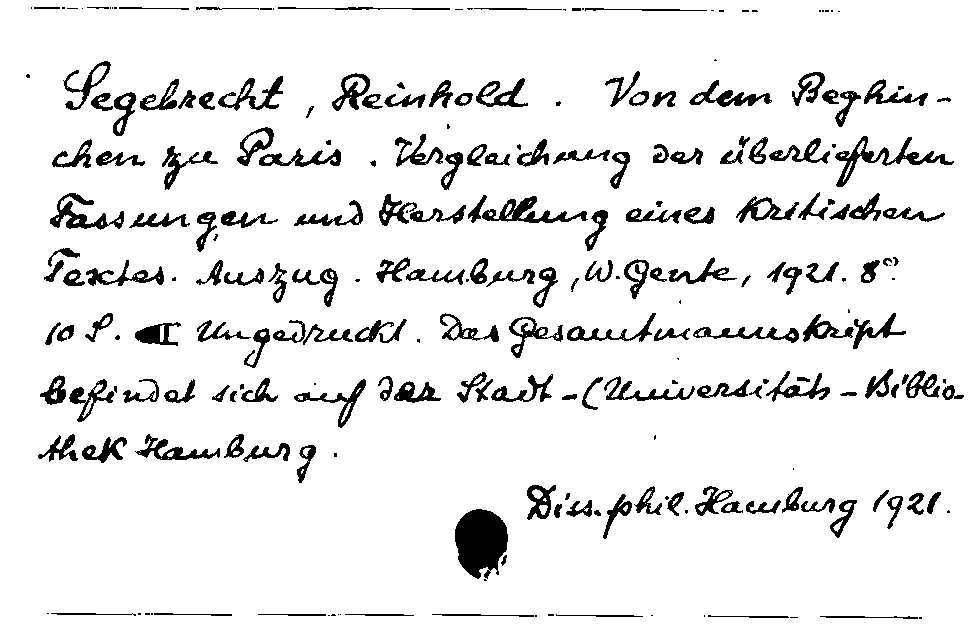 Segebrecht, Reinhold. Von dem Beghin-
chen zu Paris. Vergleichung der überlieferten
Fassungen und Herstellung eines kritischen
Textes. Auszug. Hamburg, W. Gente, 1921. 8°.
10 S. Ungedruckt. Das Gesamtmanuskript
befindet sich auf der Stadt-(Universitäts-Biblio-
thek Hamburg.
Diss. phil. Hamburg 1921.